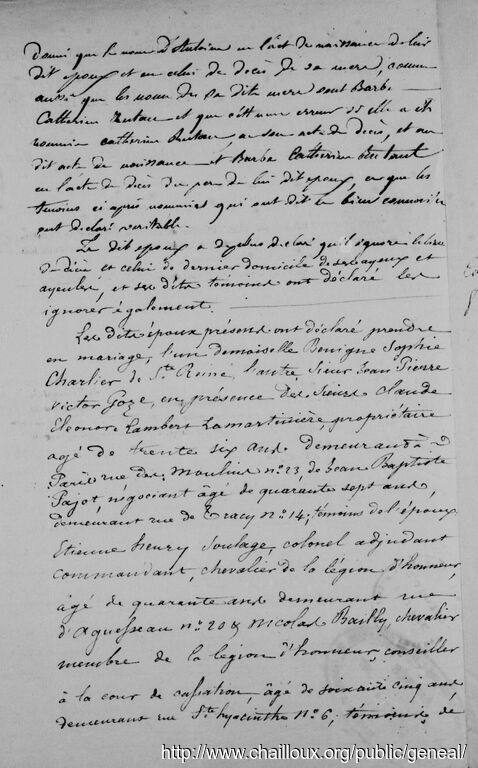 donné que le nom d'Antoine en l'act de naissance de lui
dit époux et en celui de décès de sa mere, comme
aussi que les noms de sa dite mere sont Barbe
Catherine et que c'est une erreur si elle a été
nommée catherine en son acte de décès, et au
dit act de naissance et Barbe Catherine
en l'acte de décès du pere de lui dit époux, ce que les
témoins ci après nommés qui ont dit le bien connoître
ont déclaré véritable.
Le dit époux a déplus déclaré qu'il ignore le lieu
de décès et celui de dernier domicile de ses ayeux et
ayeules, et ses dits témoins ont déclaré les
ignorer également.
Les dits époux présens ont déclaré prendre
en mariage, l'un demoiselle Benigne Sophie
Charlier de Ste Reine, l'autre Sieur Jean Pierre
Victor Goze, en présence des Sieurs Claude
Eleonore Lambert Lamartinière, propriétaire
agé de trente six ans demeurant à
Paris rue des Moulins no. 23, de Jean Baptiste
Pajot, négociant âgé de quarante sept ans,
demeurant rue de Tracy no. 14; témoins de l'époux,
Etienne henry Soulage, colonel adjudant
commandant, chevalier de la légion d'honneur,
âgé de quarante ans demeurant rue
d'Aguesseau no. 20 & Nicolas Bailly, chevalier
membre de la légion d'honneur, conseiller
à la cour de cassation, âgé de soixante cinq ans,
demeurant rue Ste hyacinthe No. 6, témoins de
http://www.chailloux.org/public/geneal/